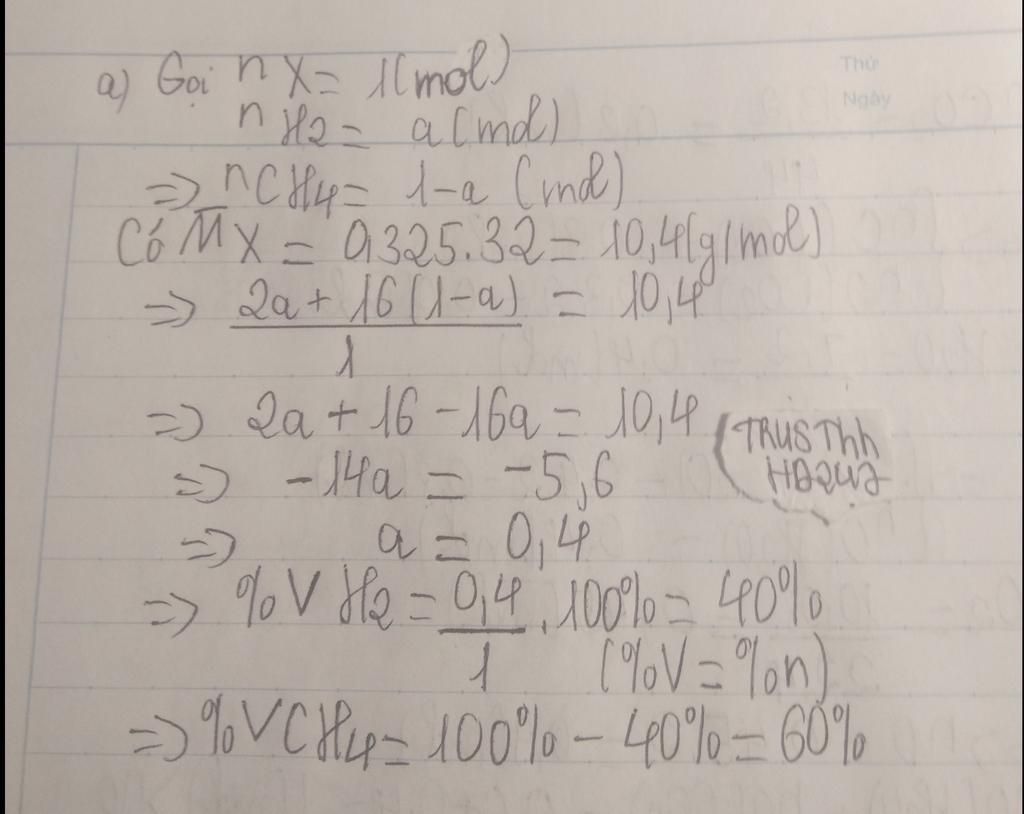 Thứ
Ngày
a) Gọi nX = 1(mol)
nH2 = a(mol)
=> nCH4 = 1-a (mol)
Có M̅X = 0,325.32 = 10,4(g/mol)
=> 2a + 16(1-a) = 10,4
1
=> 2a + 16 - 16a = 10,4
=> -14a = -5,6
=> a = 0,4
=> %VH2 = 0,4 . 100% = 40%
1 (%V = %n)
=> %VCH4 = 100% - 40% = 60%